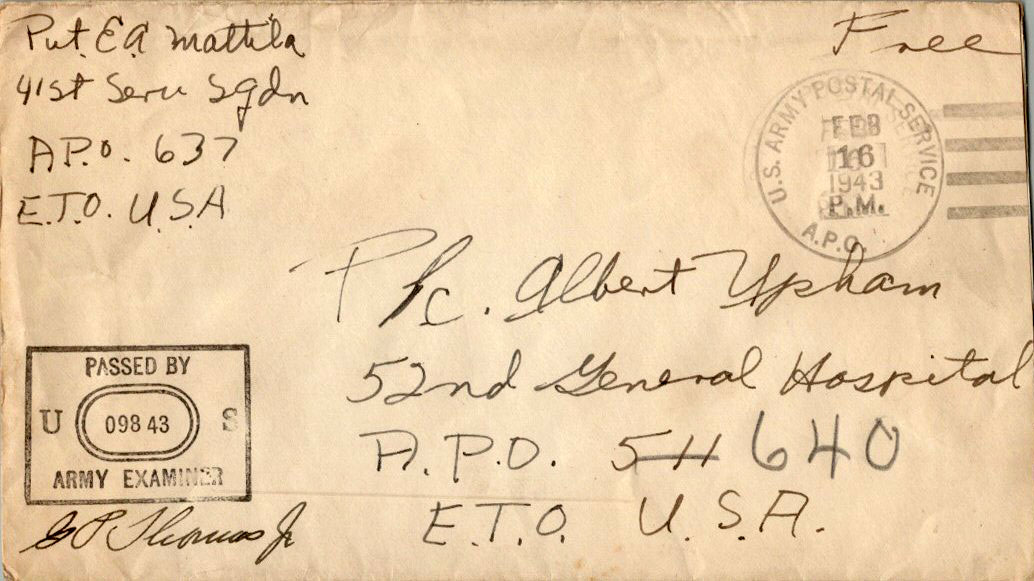 Pvt. E A Mattila
41st Serv Sqdn
A.P.O. 637
E.T.O. U.S.A
Free
U.S. ARMY POSTAL SERVICE
FEB
16
1943
P.M.
A.P.O.
Pfc. Albert Upham
52nd General Hospital
A.P.O. 511 640
E.T.O. U.S.A.
PASSED BY
U 098 43 S
ARMY EXAMINER
G P Thomas Jr